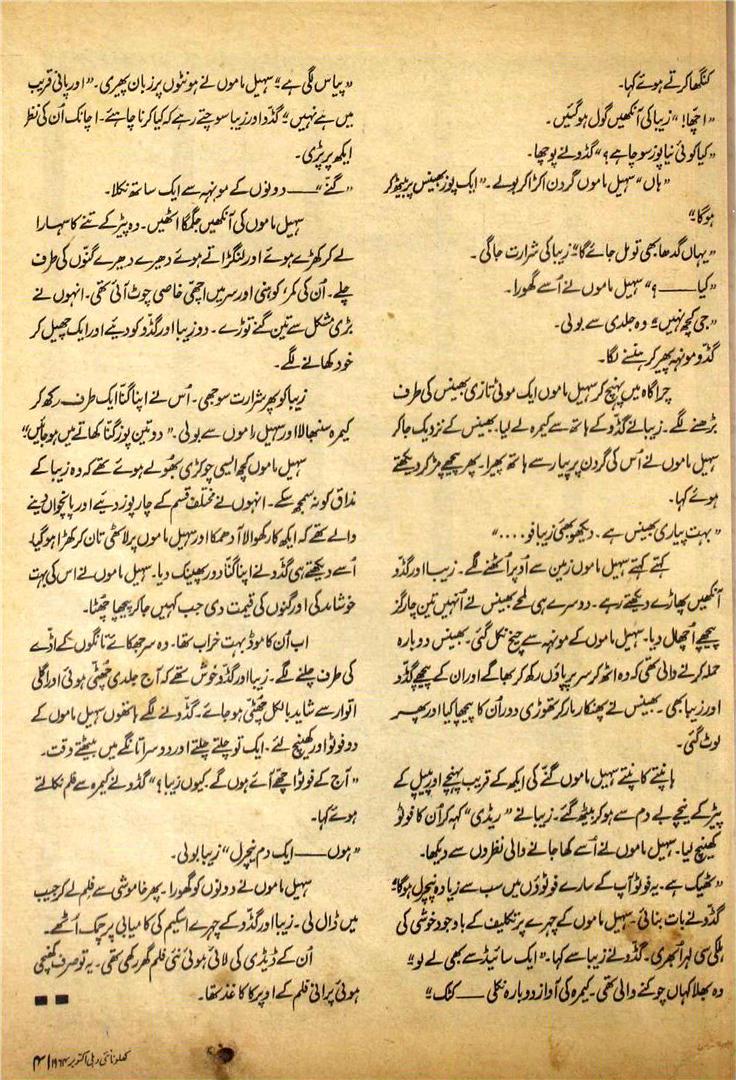 کنگھا کرتے ہوئے کہا۔
”اچھا!“ زیبا کی آنکھیں گول ہوگئیں۔
”کیا کوئی نیا پوز سوچا ہے؟“ گڈو نے پوچھا۔
”ہاں“ سہیل ماموں گردن اکڑا کر بولے۔ ”ایک پوز بھینس پر بیٹھ کر
ہوگا“
”یہاں گدھا بھی تو مل جائے گا“ زیبا کی شرارت جاگی۔
”کیا——؟“ سہیل ماموں نے اُسے گھورا۔
”جی کچھ نہیں“ وہ جلدی سے بولی۔
گڈو مونہہ پھیر کر ہنسنے لگا۔
چراگاہ میں پہنچ کر سہیل ماموں ایک موٹی تازی بھینس کی طرف
بڑھنے لگے۔ زیبا نے گڈو کے ہاتھ سے کیمرہ لے لیا۔ بھینس کے نزدیک جاکر
سہیل ماموں نے اُس کی گردن پر پیار سے ہاتھ پھیرا۔ پھر پیچھے مڑ کر دیکھتے
ہوئے کہا۔
”بہت پیاری بھینس ہے۔ دیکھو بھئی زیبا فو....“
کہتے کہتے سہیل ماموں زمین سے اُوپر اُٹھنے لگے۔ زیبا اور گڈو
آنکھیں پھاڑے دیکھتے رہے۔ دوسرے ہی لمحے بھینس نے اُنہیں تین چار گز
پیچھے اُچھال دیا۔ سہیل ماموں کے مونہہ سے چیخ نکل گئی۔ بھینس دوبارہ
حملہ کرنے والی تھی کہ وہ اٹھ کر سر پر پاؤں رکھ کر بھاگے اور ان کے پیچھے گڈو
اور زیبا بھی۔ بھینس نے پھنکار مار کر تھوڑی دور اُن کا پیچھا کیا اور پھر
لوٹ گئی۔
ہانپتے کانپتے سہیل ماموں گنے کی ایکھ کے قریب پہنچے اور پیپل کے
پیڑ کے نیچے بے دم سے ہو کر بیٹھ گئے۔ زیبا نے ”ریڈی“ کہہ کر اُن کا فوٹو
کھینچ لیا۔ سہیل ماموں نے اُسے کھا جانے والی نظروں سے دیکھا۔
”ٹھیک ہے۔ یہ فوٹو آپ کے سارے فوٹوؤں میں سب سے زیادہ نیچرل ہوگا“
گڈو نے بات بنائی۔ سہیل ماموں کے چہرے پر تکلیف کے باوجود خوشی کی
ہلکی سی لہر اُبھری۔ گڈو نے زیبا سے کہا۔ ”ایک سائیڈ سے بھی لے لو“
وہ بھلا کہاں چوکنے والی تھی۔ کیمرہ کی آواز دوبارہ نکلی —— کٹک“
”پیاس لگی ہے“ سہیل ماموں نے ہونٹوں پر زبان پھیری۔ ”اور پانی قریب
میں ہے نہیں“ گڈو اور زیبا سوچتے رہے کہ کیا کرنا چاہئے۔ اچانک اُن کی نظر
ایکھ پر پڑی۔
”گنے“—— دونوں کے مونہہ سے ایک ساتھ نکلا۔
سہیل ماموں کی آنکھیں جگمگا اٹھیں۔ وہ پیڑ کے تنے کا سہارا
لے کر کھڑے ہوئے اور لنگڑاتے ہوئے دھیرے دھیرے گنوں کی طرف
چلے۔ اُن کی کمر، کوہنی اور سر میں اچھی خاصی چوٹ آئی تھی۔ انہوں نے
بڑی مشکل سے تین گنے توڑے۔ دو زیبا اور گڈو کو دیئے اور ایک چھیل کر
خود کھانے لگے۔
زیبا کو پھر شرارت سوجھی۔ اُس نے اپنا گنا ایک طرف رکھ کر
کیمرہ سنبھالا اور سہیل ماموں سے بولی۔ ”دو تین پوز گنا کھاتے میں ہو جائیں“
سہیل ماموں کچھ ایسی چوکڑی بھولے ہوئے تھے کہ وہ زیبا کے
مذاق کو نہ سمجھ سکے۔ انہوں نے مختلف قسم کے چار پوز دیئے اور پانچواں دینے
والے تھے کہ ایکھ کا رکھوالا آ دھمکا اور سہیل ماموں پر لاٹھی تان کر کھڑا ہوگیا۔
اُسے دیکھتے ہی گڈو نے اپنا گنا دور پھینک دیا۔ سہیل ماموں نے اس کی بہت
خوشامد کی اور گنوں کی قیمت دی جب کہیں جاکر پیچھا چُھٹا۔
اب اُن کا موڈ بہت خراب تھا۔ وہ سر جھکائے تانگوں کے اڈّے
کی طرف چلنے لگے۔ زیبا اور گڈو خوش تھے کہ آج جلدی چُھٹی ہوئی اور اگلی
اتوار سے شاید بالکل چُھٹی ہو جائے۔ گڈو نے لگے ہاتھوں سہیل ماموں کے
دو فوٹو اور کھینچ لئے۔ ایک تو چلتے چلتے اور دوسرا تانگے میں بیٹھتے وقت۔
”آج کے فوٹو اچھے آئے ہوں گے۔ کیوں زیبا؟“ گڈو نے کیمرہ سے فلم نکالتے
ہوئے کہا۔
”ہوں —— ایک دم نیچرل“ زیبا بولی۔
سہیل ماموں نے دونوں کو گھورا۔ پھر خاموشی سے فلم لے کر جیب
میں ڈال لی۔ زیبا اور گڈو کے چہرے اسکیم کی کامیابی پر چمک اُٹھے۔
اُن کے ڈیڈی کی لائی ہوئی نئی فلم گھر رکھی تھی۔ یہ تو صرف کھنچی
ہوئی پرانی فلم کے اوپر کا کاغذ تھا۔
کھلونا نئی دہلی اکتوبر ۱۹۶۴
۴۱